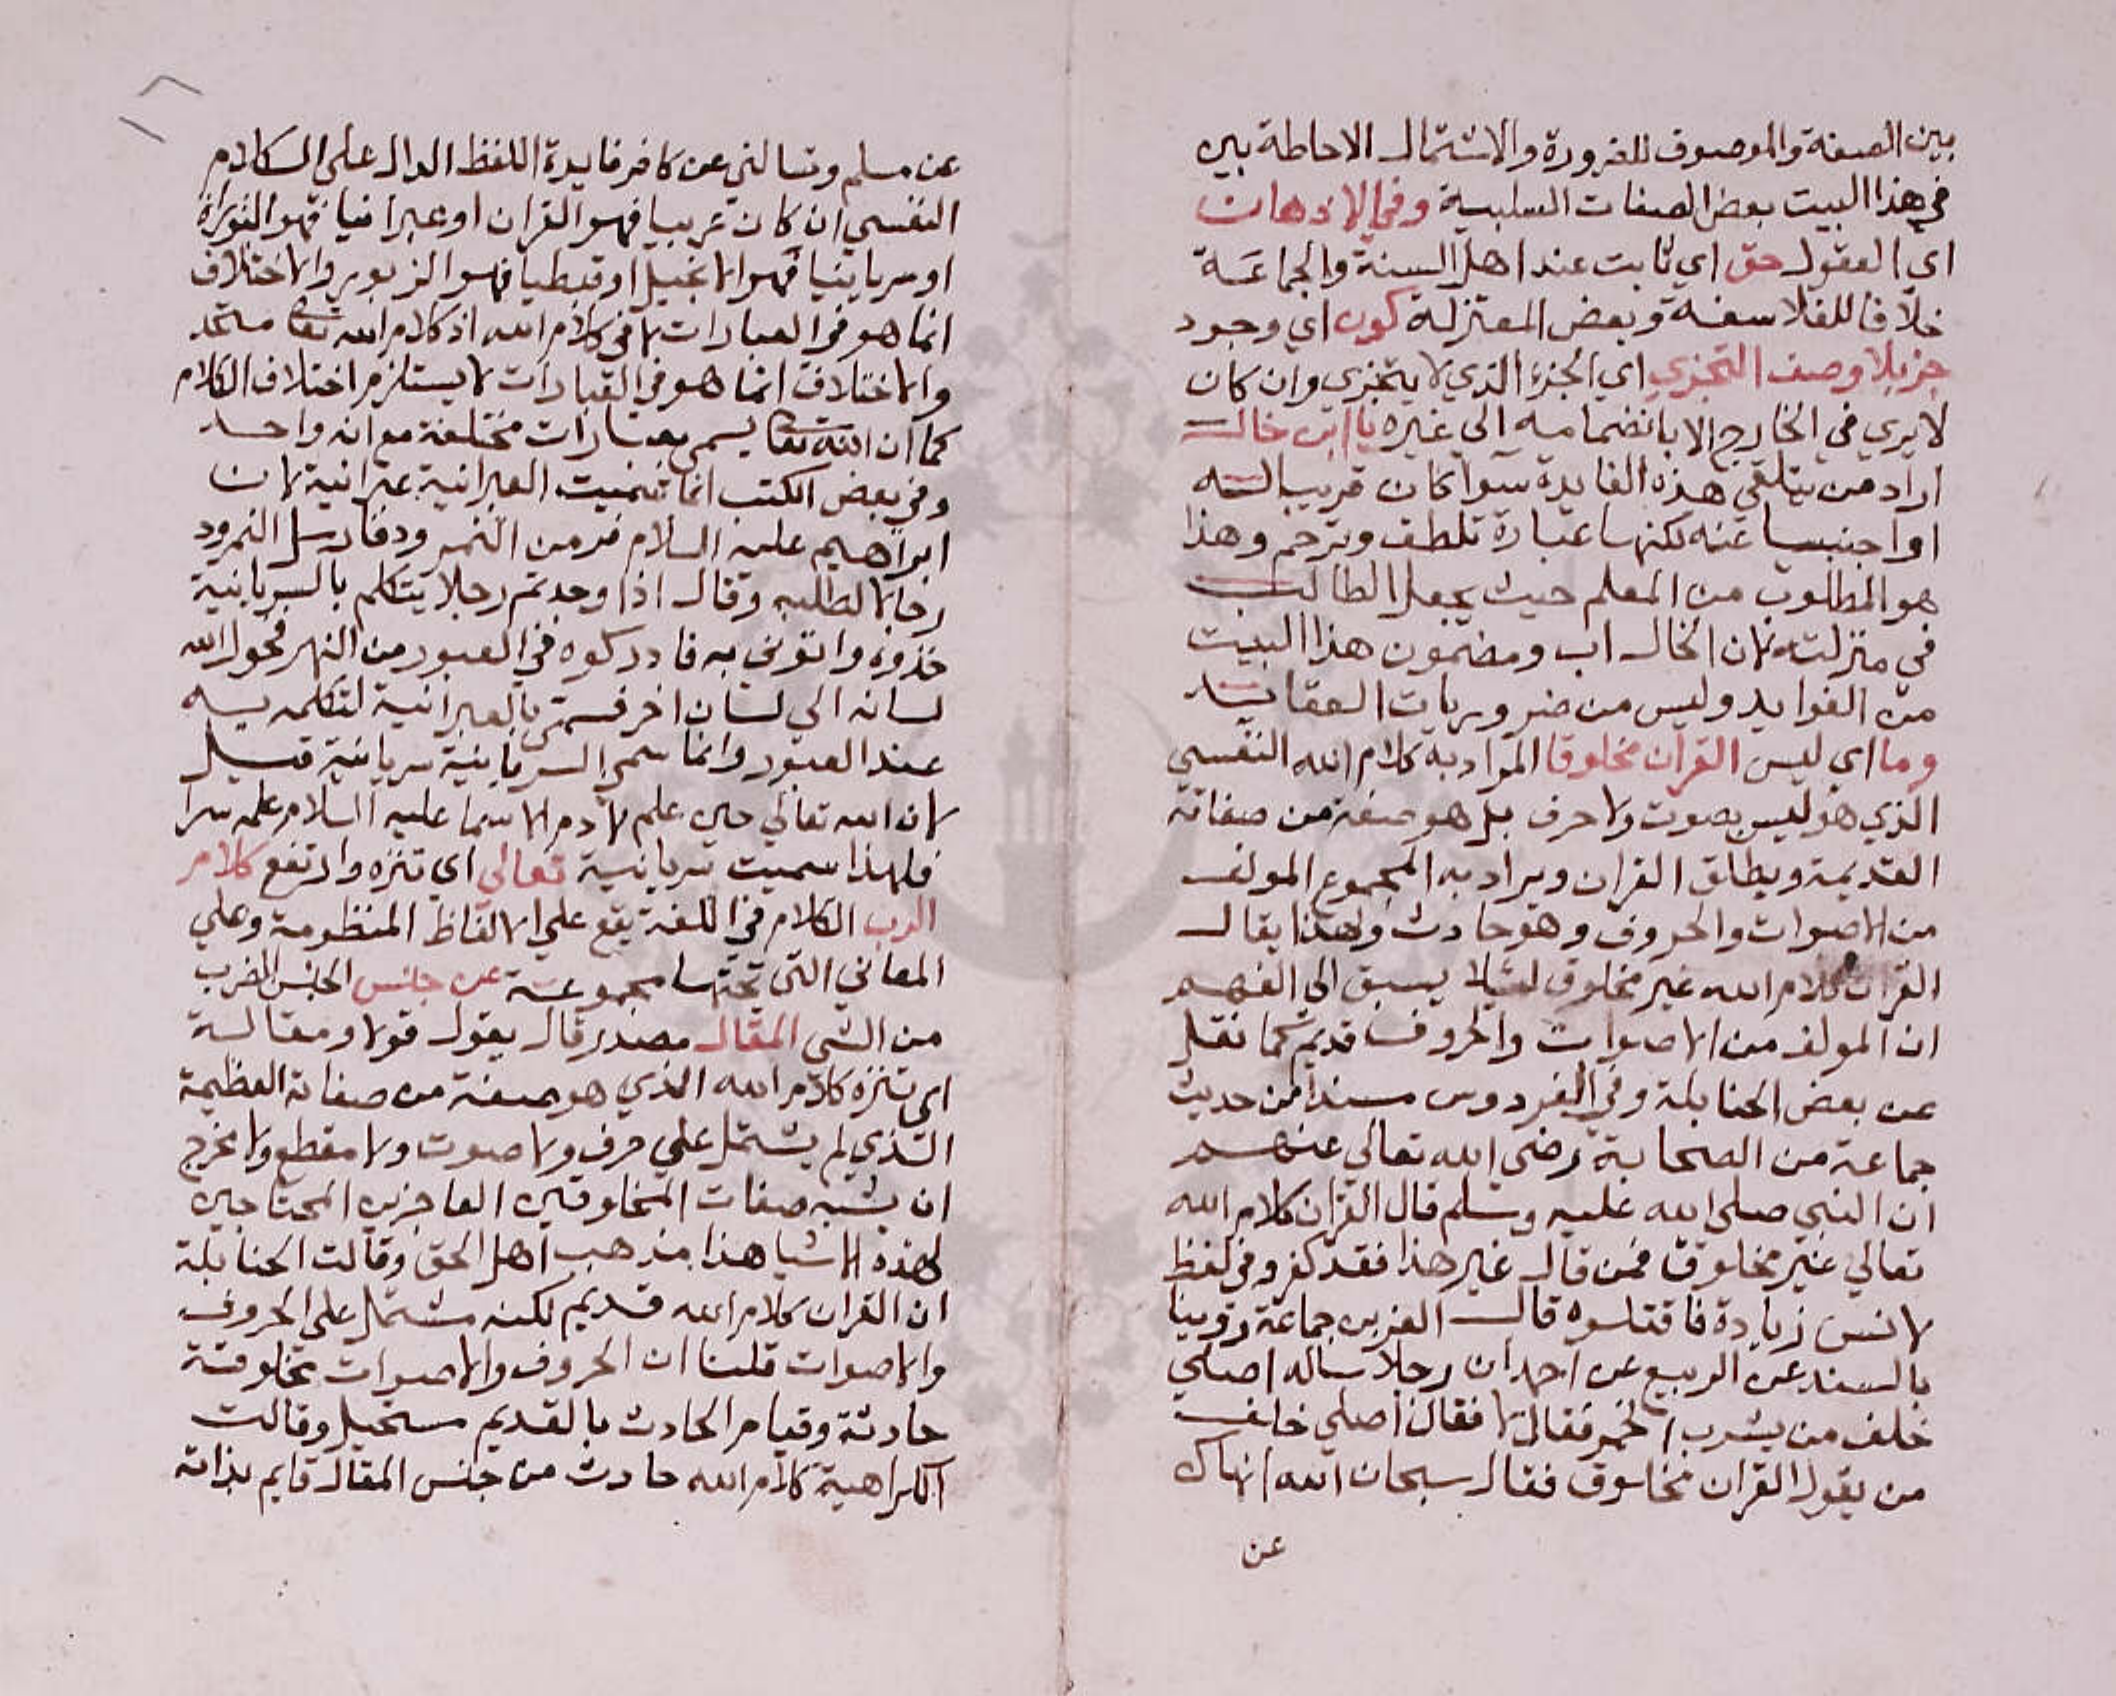 بين الصفة والموصوف للضرورة والاشتمال الاحاطة بين
في هذا البيت بعض الصفات السلبية وفي الاذهان
اي العقول حق اي ثابت عند اهل السنة والجماعة
خلافا للفلاسفة وبعض المعتزلة كون اي وجود
جزء بلا وصف التجزي اي الجزء الذي لا يتجزى وان كان
لا يري في الخارج الا بانضمامه الي غيره يا ابن خالـ
اراد من يتلقي هذه الفايدة سوا كان قريبا له
او اجنبيا عنه لكنها عبارة تلطف وترحم وهذا
هو المطلوب من المعلم حيث يجعل الطالب
في منزلته لان الخال اب ومضمون هذا البيت
من الفوايد وليس من ضروريات العقايد
وما اي ليس القران مخلوقا المراد به كلام الله النفسي
الذي هو ليس بصوت ولا حرف بل هو صفة من صفاته
القديمة ويطلق القران ويراد به المجموع المولف
من الاصوات والحروف وهو حادث ولهذا يقال
القران كلام الله غير مخلوق لئيلا يسبق الي الفهم
ان المولف من الاصوات والحروف قديم كما نقل
عن بعض الحنابلة وفي الفردوس مسندا من حديث
جماعة من الصحابة رضي الله تعالي عنهم
ان النبي صلي الله عليه وسلم قال القران كلام الله
تعالي غير مخلوق فمن قال غير هذا فقد كفر وفي لفظ
لانس زيادة فاقتلوه قال العز بن جماعة روينا
بالسند عن الربيع عن احمد ان رجلا ساله اصلي
خلف من يشرب الخمر فقال لا فقال اصلي خلف
من يقول القران مخلوق فقال سبحان الله انهاك
عن
عن مسلم وتسالني عن كافر فايدة اللفظ الدال علي الكلام
النفسي ان كان عربيا فهو القران او عبرانيا فهو التوراة
او سريانيا فهو الانجيل او قبطيا فهو الزبور والاختلاف
انما هو في العبارات لا في كلام الله اذ كلام الله تعالى متحد
والاختلاف انما هو في العبارات لا يستلزم اختلاف الكلام
كما ان الله تعالى يسمى بعبارات مختلفة مع انه واحد
وفي بعض الكتب انما سميت العبرانية عبرانية لان
ابراهيم عليه السلام فر من النمرود فارسل النمرود
رجالا لطلبه وقال اذا وجدتم رجلا يتكلم بالسريانية
خذوه واتوني به فادركوه في العبور من النهر فحول الله
لسانه الي لسان اخر فسمي بالعبرانية لتكلمه به
عند العبور وانما سمي السريانية سريانية قيل
لان الله تعالي حين علم لادم الاسما عليه السلام علمه سرا
فلهذا سميت سريانية تعالي اي تنزه وارتفع كلام
الرب الكلام في اللغة يقع علي الالفاظ المنظومة وعلي
المعاني التي تحتها مجموعة عن جانس الجنس الضرب
من الشي المقال مصدر قال يقول قولا ومقالة
اي تنزه كلام الله الذي هو صفة من صفاته العظيمة
الذي لم يشتمل علي حرف ولا صوت ولا مقطع ولا مخرج
ان يشبه صفات المخلوقين العاجزين المحتاجين
لهذه الاشيا هذا مذهب اهل الحق وقالت الحنابلة
ان القران كلام الله قديم لكنه مشتمل علي الحروف
والاصوات قلنا ان الحروف والاصوات مخلوقة
حادثة وقيام الحادث بالقديم مستحيل وقالت
الكراهية كلام الله حادث من جنس المقال قايم بذاته